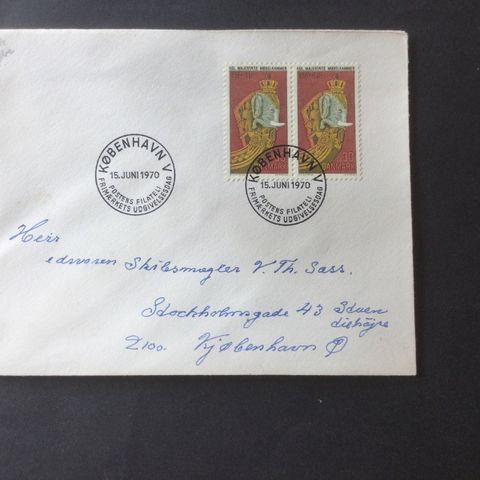 KGL. MAJESTÆTS MØBELKAMMER
KGL. MAJESTÆTS MØBELKAMMER
30
DANMARK
KØBENHAVN V
15.JUNI 1970
POSTENS FILATELI
FRIMÆRKETS UDGIVELSESDAG
KØBENHAVN V
15.JUNI 1970
POSTENS FILATELI
FRIMÆRKETS UDGIVELSESDAG
Herr
edsvoren Skibsmægler V. Th. Sass.
Stockholmsgade 43 Stuen
2100. Kjøbenhavn Ø